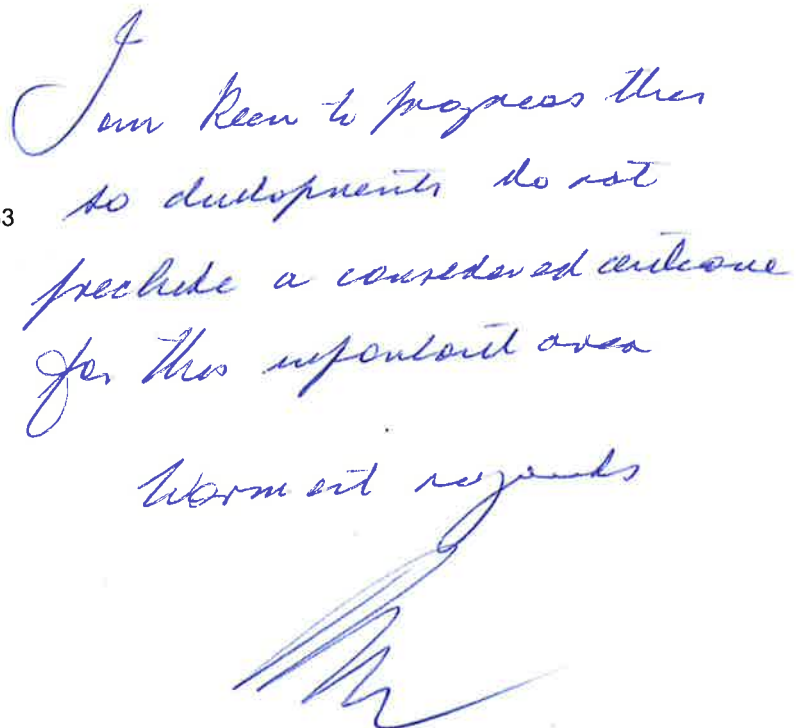 I am keen to progress this
3 so developments do not
preclude a considered outcome
for this important area
Warmest regards